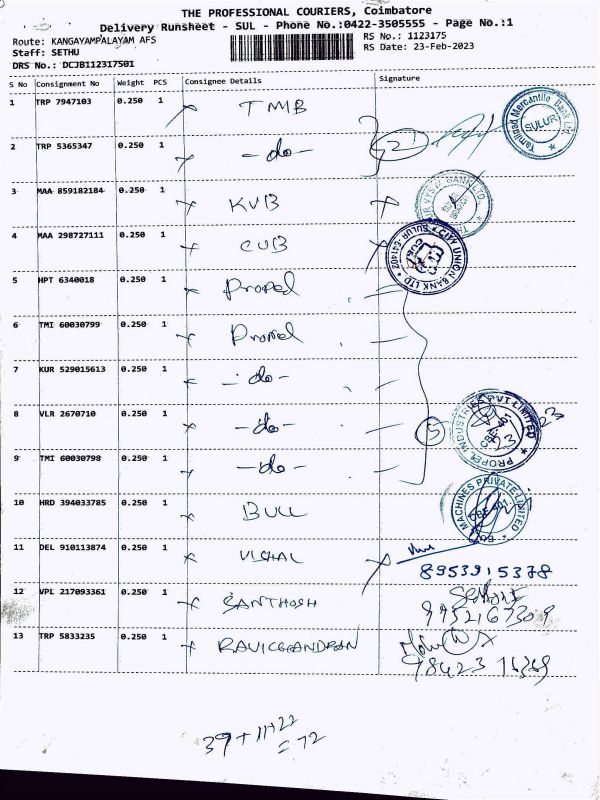 THE PROFESSIONAL COURIERS, Coimbatore
Delivery Runsheet - SUL - Phone No.:0422-3505555 - Page No.:1
Route: KANGAYAMPALAYAM AFS
RS No.: 1123175
Staff: SETHU
RS Date: 23-Feb-2023
DRS No.: DCJB112317501
S No Consignment No Weight PCS Consignee Details Signature
1 TRP 7947103 0.250 1 TMB
Tamilnad Mercantile Bank Ltd SULUR
2 TRP 5365347 0.250 1 -do- 2
3 MAA 859182184 0.250 1 KVB
4 MAA 298727111 0.250 1 CUB
CITY UNION BANK LTD SULUR-641402
5 HPT 6340018 0.250 1 Propel
6 TMI 60030799 0.250 1 Propel
7 KUR 529015613 0.250 1 -do-
8 VLR 2670710 0.250 1 -do- 5
PROPEL INDUSTRIES PVT LIMITED
9 TMI 60030798 0.250 1 -do-
10 HRD 394033785 0.250 1 BULL
MACHINES PRIVATE LIMITED
11 DEL 910113874 0.250 1 VISHAL
8953915378
12 VPL 217093361 0.250 1 SANTHOSH
9952167309
13 TRP 5833235 0.250 1 RAVICHANDRAN
39+11+22
=72